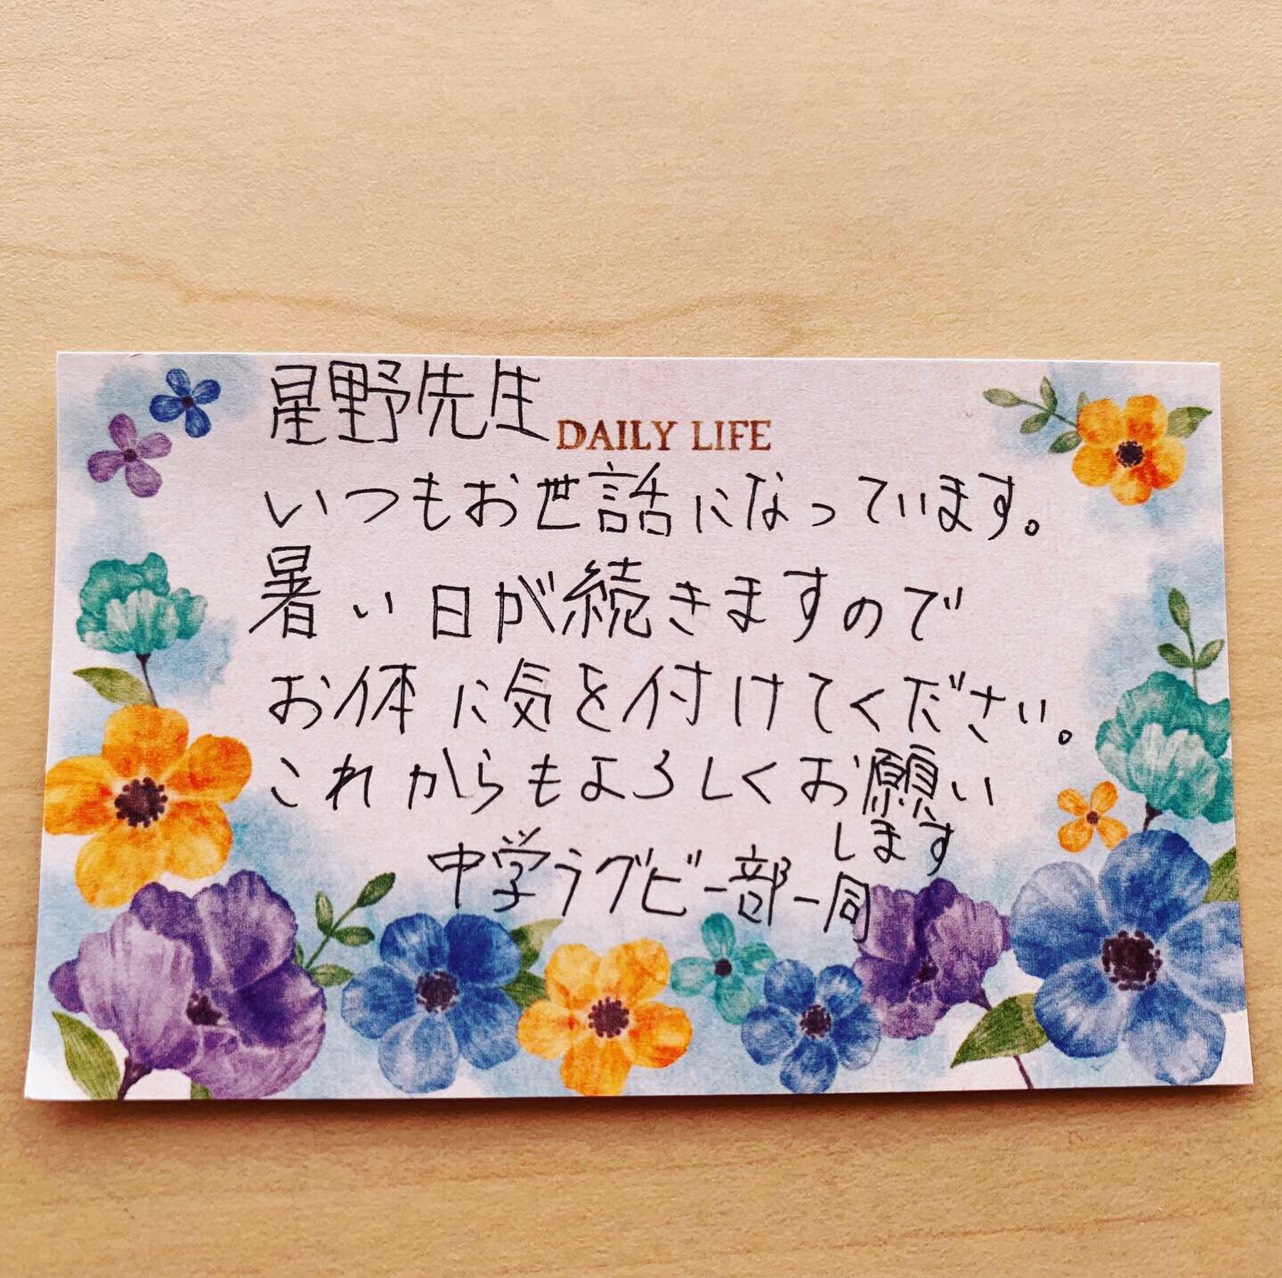 星野先生
DAILY LIFE
いつもお世話になっています。
暑い日が続きますので
お体に気を付けてください。
これからもよろしくお願い
します
中学ラグビー部一同